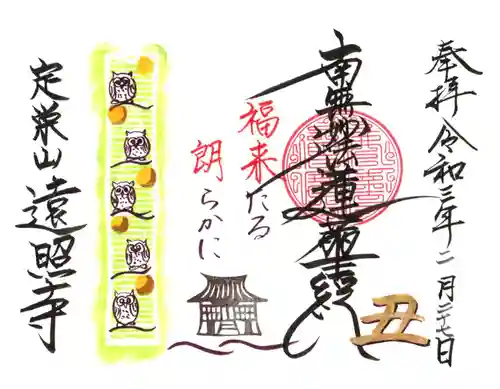 奉拝 令和三年二月二十七日
南無妙法蓮華経
丑
福来たる
朗らかに
定栄山 遠照寺